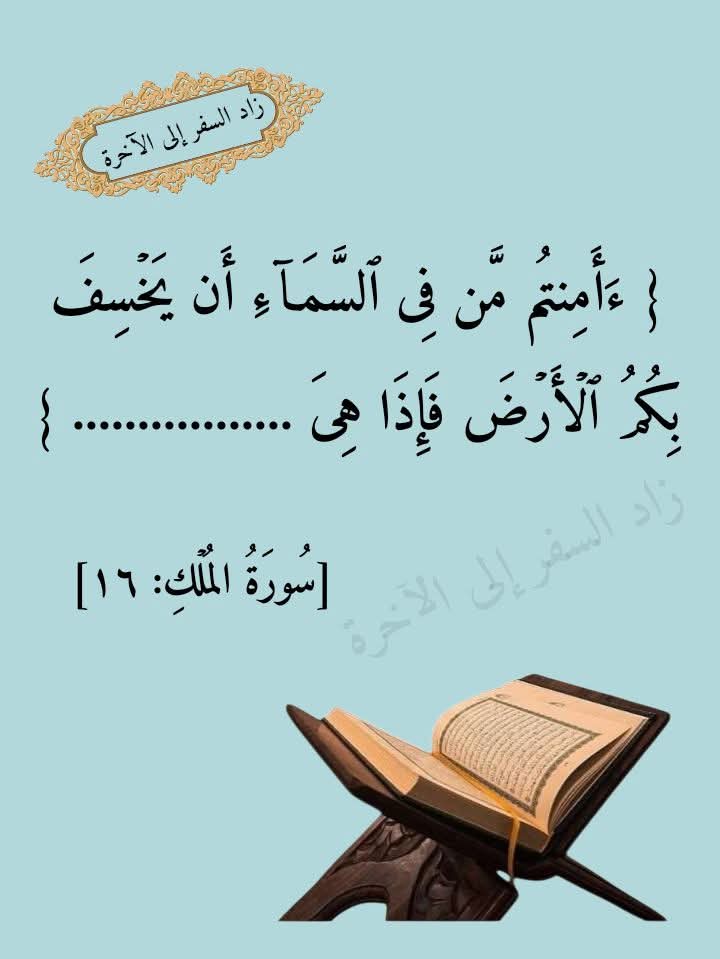 زاد السفر إلى الآخرة
{ ءَأَمِنتُم مَّن فِى ٱلسَّمَآءِ أَن يَخْسِفَ
بِكُمُ ٱلْأَرْضَ فَإِذَا هِىَ ................. }
زاد السفر إلى الآخرة
[سُورَةُ المُلْكِ: ١٦]